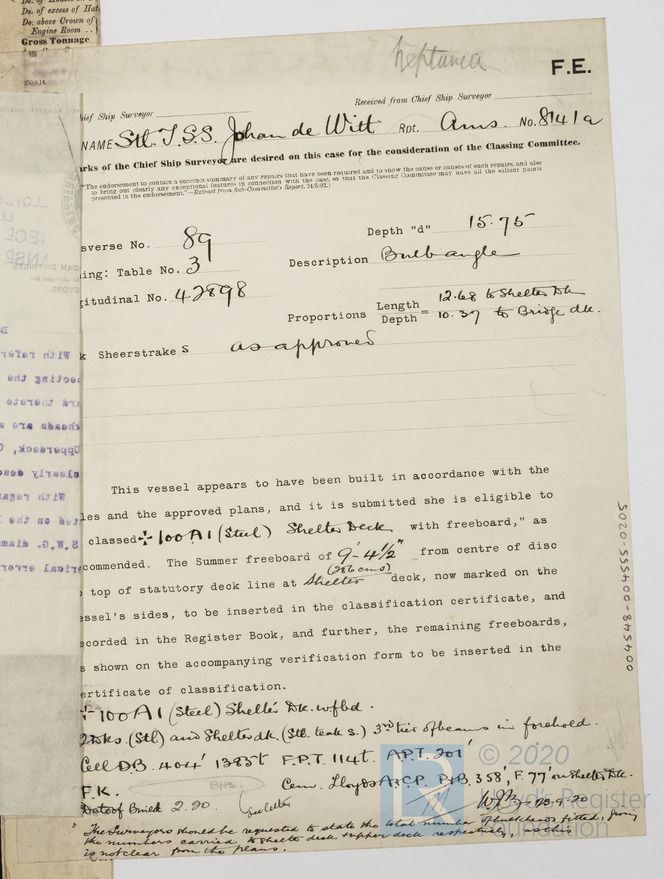 Do. of excess of Hat
Do. above Crown of
Engine Room ..
Gross Tonnage
Neptunia
F.E.
Received from Chief Ship Surveyor
hief Ship Surveyor
NAME Stl. T.S.S. Johan de Witt Rpt. Ams. No. 8141a
arks of the Chief Ship Surveyor are desired on this case for the consideration of the Classing Committee.
"The endorsement to contain a succinct summary of any repairs that have been required and to show the cause or causes of such repairs, and also
to bring out clearly any exceptional features in connection with the case, so that the Classing Committee may have all the salient points
presented in the endorsement."—Extract from Sub-Committee's Report, 24/5/92.)
sverse No. 89
Depth "d" 15.75
ing: Table No. 3
Description Bulb angle
gitudinal No. 42898
Proportions Length Depth = 12.68 to Shelter Dk
10.37 to Bridge dk.
k Sheerstrakes as approved
This vessel appears to have been built in accordance with the
les and the approved plans, and it is submitted she is eligible to
classed +100A1 (Steel) Shelter Deck with freeboard," as
commended. The Summer freeboard of 9'-4½" from centre of disc
(286 cms)
top of statutory deck line at Shelter deck, now marked on the
essel's sides, to be inserted in the classification certificate, and
ecorded in the Register Book, and further, the remaining freeboards,
s shown on the accompanying verification form to be inserted in the
ertificate of classification.
+100A1 (Steel) Shelter Dk. wfbd.
2 Dks (Stl) and Shelter dk. (Stl. teak s.) 3rd tier of beams in forehold.
Cell D.B. 404' 1385t F.P.T. 114t. A.P.T. 201'
F.K. BHS. Cem. Lloyds A&C.P. P&B 358', F. 77' on Shelter Dk.
Date of Build 2.20. See letter
23.9.20
The Surveyors should be requested to state the total number of bulkheads fitted, giving
the numbers carried to shelter deck & upper deck respectively, as this
is not clear from the plans.
5020-555400-845400
© 2020
Lloyd's Register
Foundation